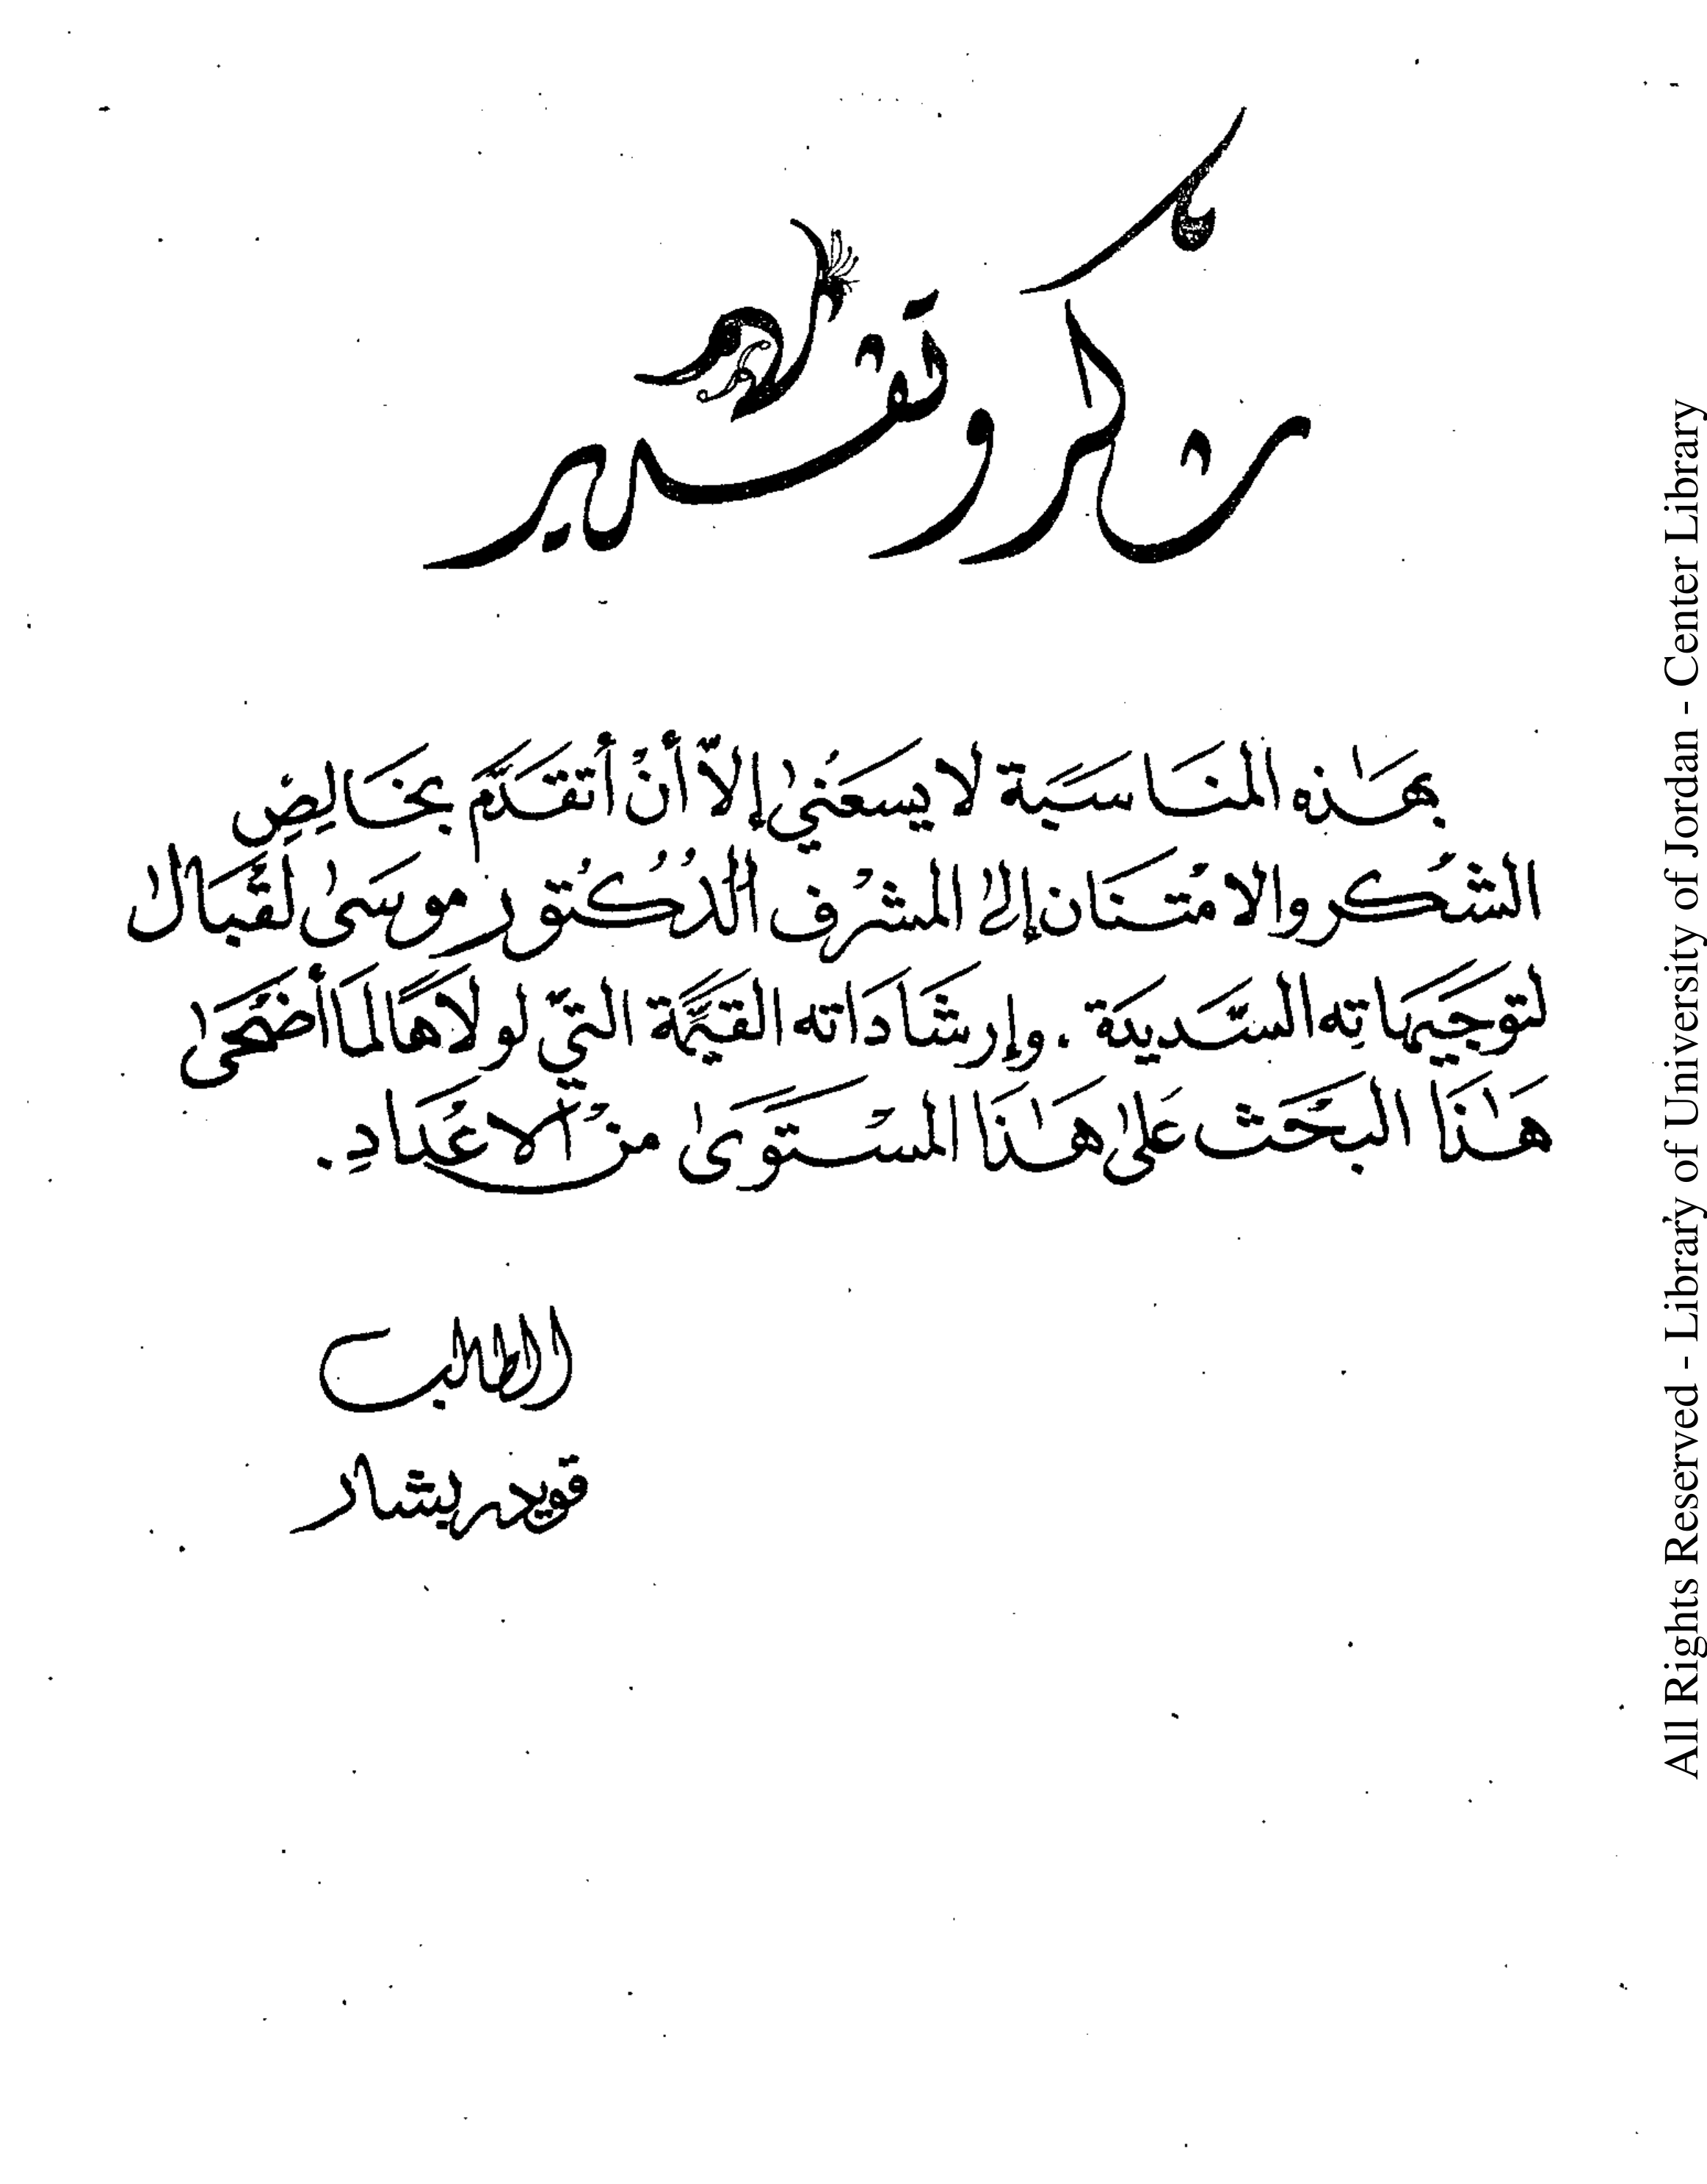 شكر وتقدير
بهذه المناسبة لا يسعني إلاّ أن أتقدّم بخالص
الشكر والامتنان إلى المشرف الدكتور موسى لقبال
لتوجيهاته السّديدة . وإرشاداته القيّمة التي لولاها لما أضحى
هذا البحث على هذا المستوى من الاعداد .
الطالب
قويدر بشار
All Rights Reserved - Library of University of Jordan - Center Library